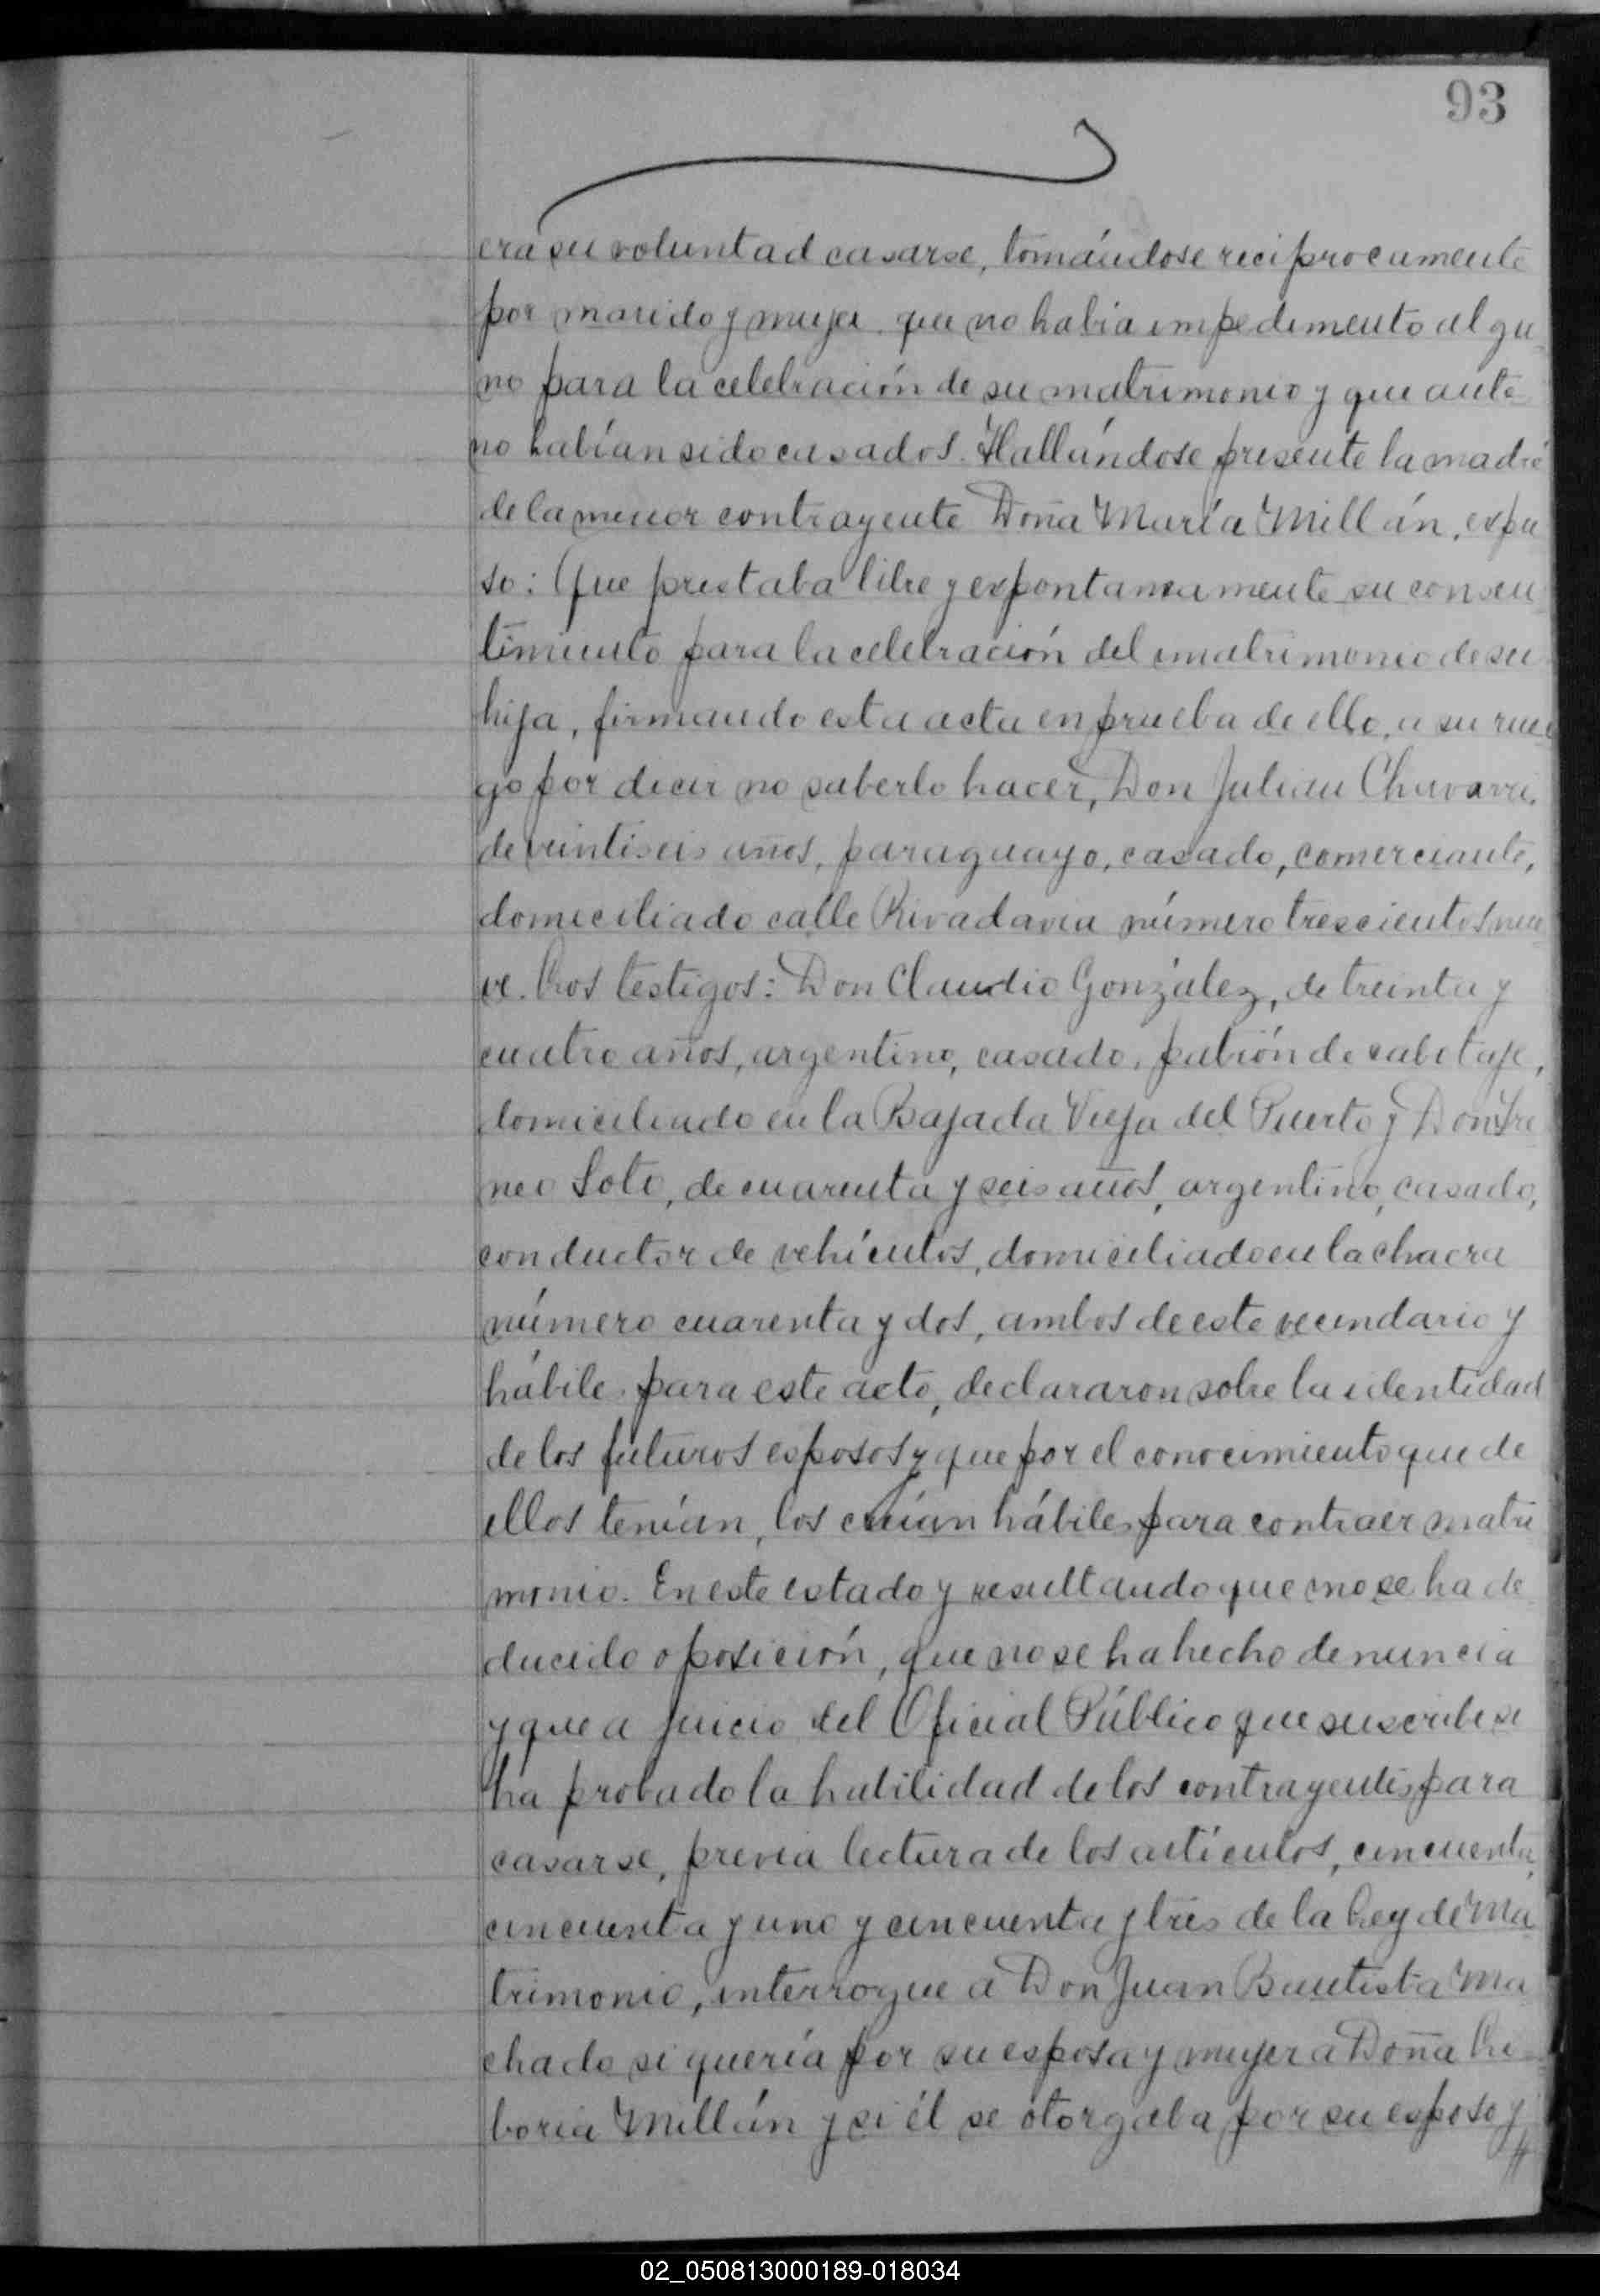 93
era su voluntad casarse, tomándose reciprocamente
por marido y mujer que no habia impedimento algu
no para la celebración de su matrimonio y que ante
no habían sido casados. Hallándose presente la madre
de la menor contrayente Doña María Millán, expu
so: Que prestaba libre y expontaneamente su consen
timiento para la celebración del matrimonio de su
hija, firmando esta acta en prueba de ello, a su rue
go por decir no saberlo hacer, Don Julian Chavarri,
de veintiseis años, paraguayo, casado, comerciante,
domiciliado calle Rivadavia número trescientos nue
ve. Los testigos: Don Claudio González, de treinta y
cuatro años, argentino, casado, patrón de cabotaje,
domiciliado en la Bajada Vieja del Puerto y Don Ire
neo Soto, de cuarenta y seis años, argentino, casado,
conductor de vehículos, domiciliado en la chacra
número cuarenta y dos, ambos de este vecindario y
hábiles para este acto, declararon sobre la identidad
de los futuros esposos y que por el conocimiento que de
ellos tenían, los creían hábiles para contraer matri
monio. En este estado y resultando que no se ha de
ducido oposición, que no se ha hecho denuncia
y que a juicio del Oficial Público que suscribe se
ha probado la habilidad de los contrayentes para
casarse, previa lectura de los artículos, cincuenta,
cincuenta y uno y cincuenta y tres de la Ley de Ma
trimonio, interrogue a Don Juan Bautista Ma
chado si quería por su esposa y mujer a Doña Li
boria Millán y si él se otorgaba por su esposo y
02_050813000189-018034